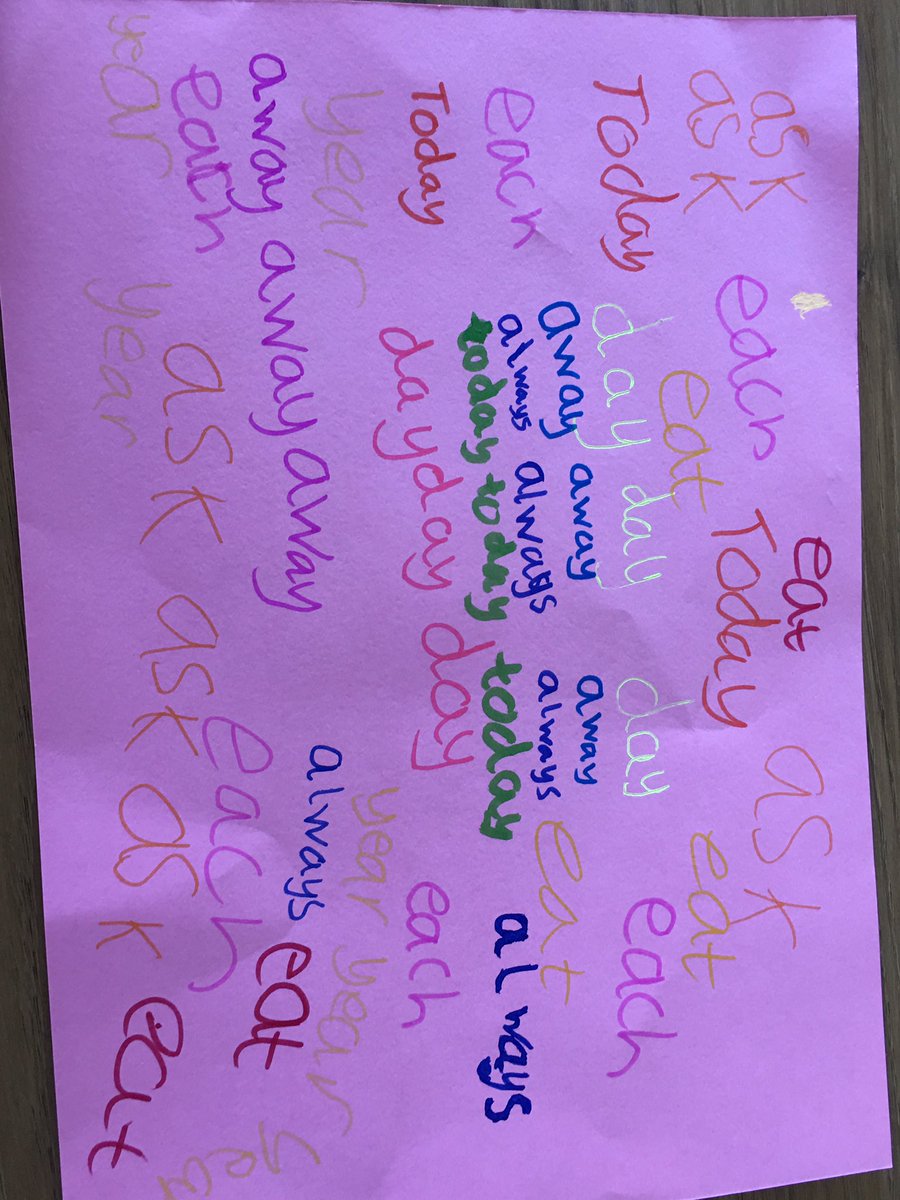 ask eat ask
ask each Today eat
Today eat each
day day day
away away away
each always always always eat
today today today always
Today day day day each
year year year
away away away always eat year
each each
ask ask ask eat
year year